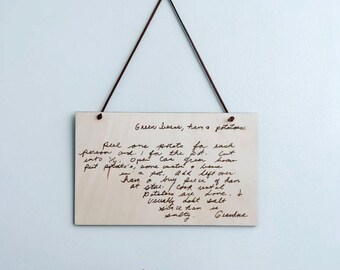 Green beans, ham & potatoes
Peel one potato for each
person and 1 for the pot. Cut
into ¼. Open can green bean
put potato's, some water & beans
in a pot. Add left over
ham or a buy piece of ham
at store. Cook until
potatoes are done. I
usually don't salt
since ham is
salty Grandma